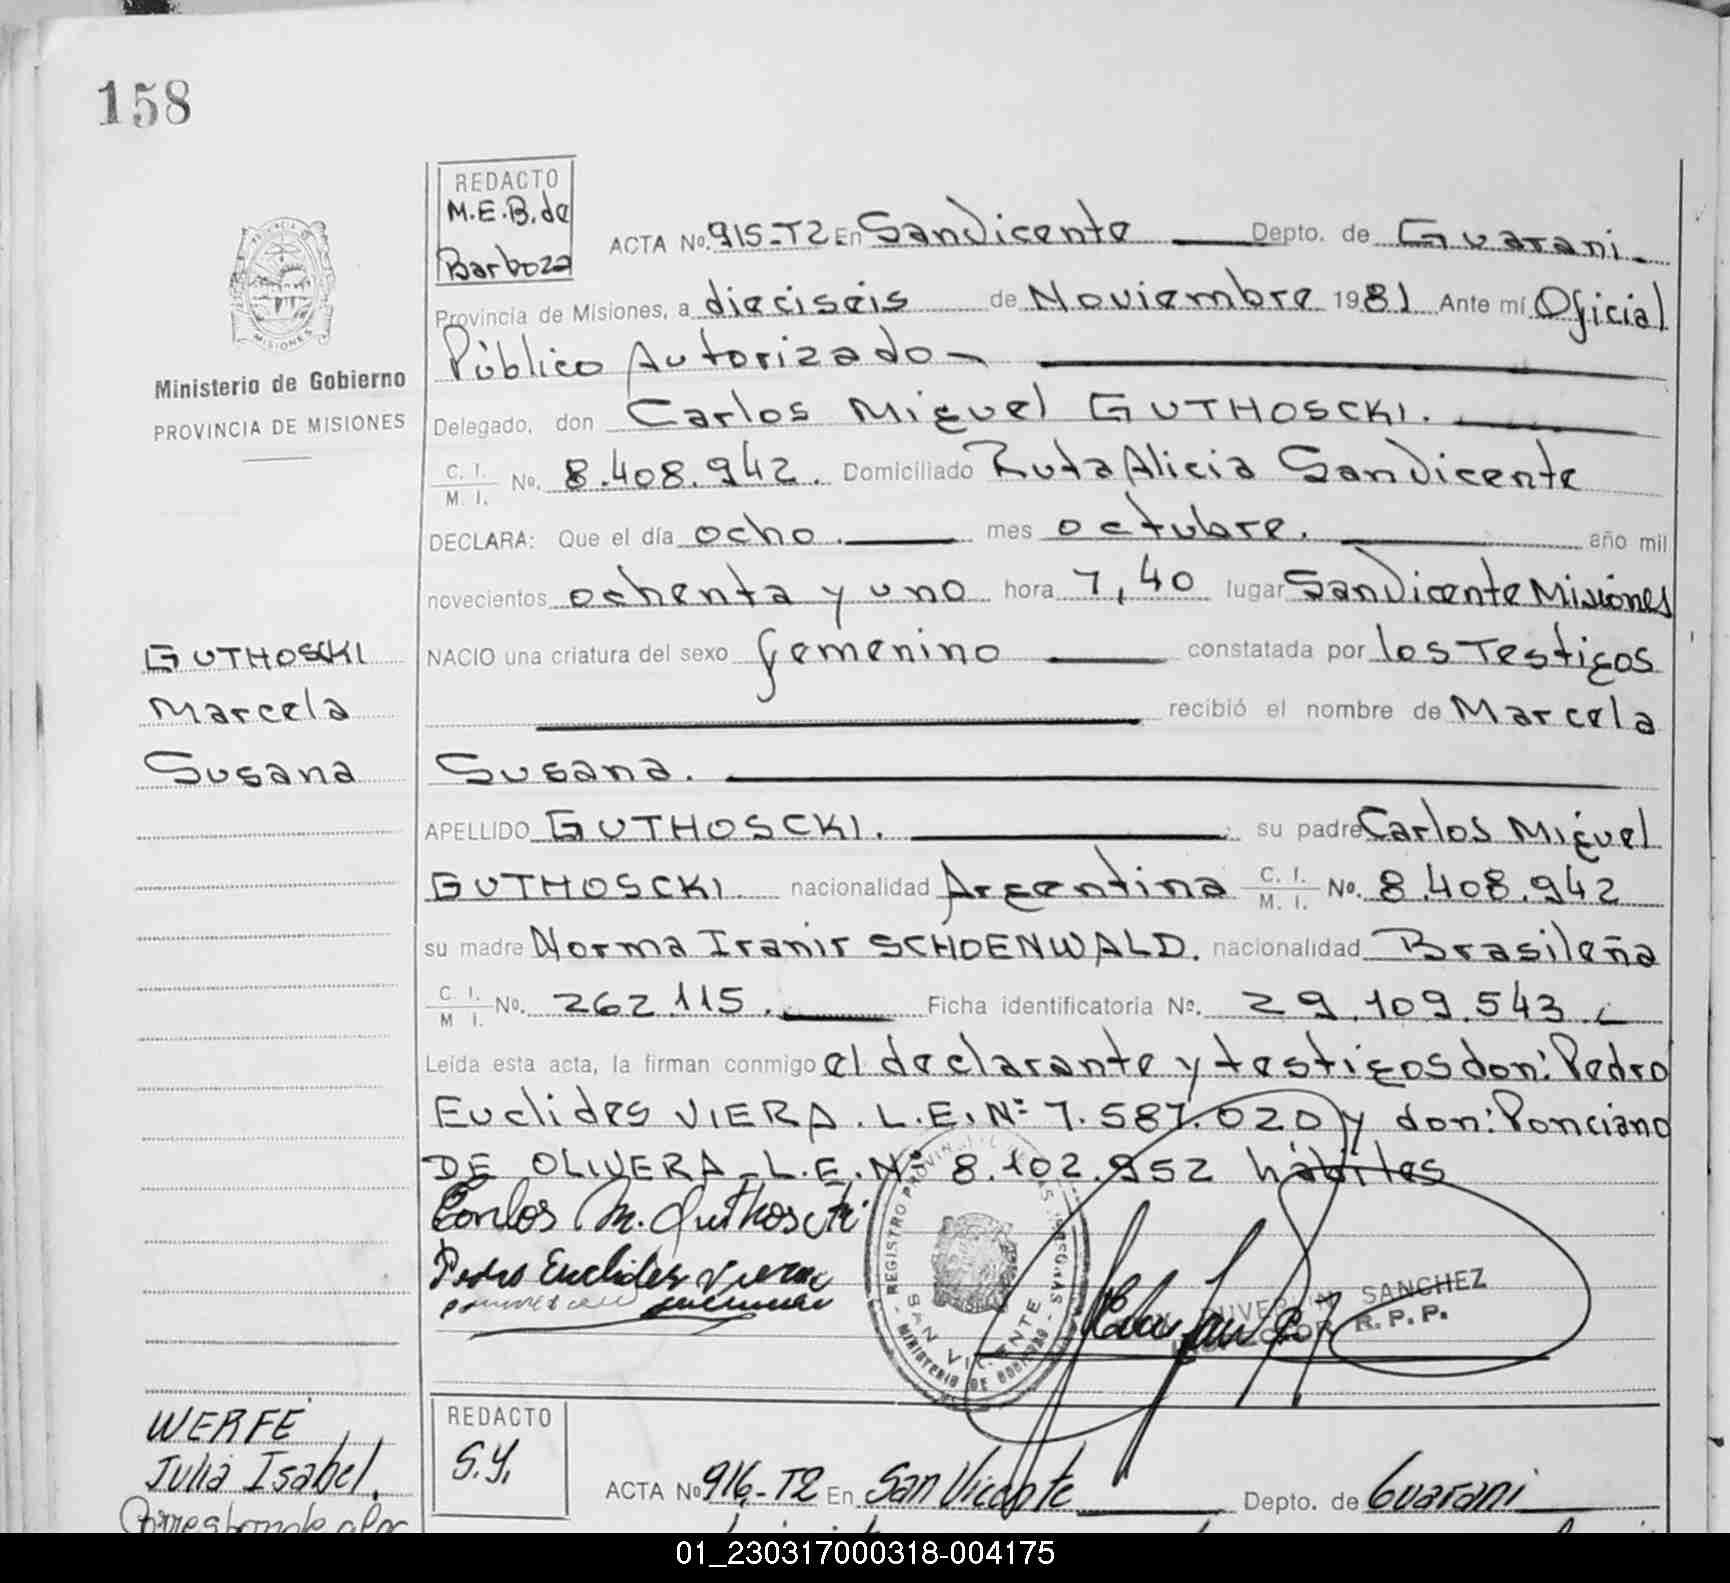 158
REDACTO
M.E.B. de
Barboza
ACTA No. 915-T2 En San Vicente Depto. de Guaraní
Provincia de Misiones, a dieciseis de Noviembre 1981 Ante mí Oficial
Público Autorizado
Ministerio de Gobierno
PROVINCIA DE MISIONES
MISIONES
Delegado, don Carlos Miguel GUTHOSCKI.
C. I. M. I. No. 8.408.942. Domiciliado Ruta Alicia San Vicente
DECLARA: Que el día ocho. mes octubre. año mil
novecientos ochenta y uno hora 7,40 lugar San Vicente Misiones
GUTHOSCKI
Marcela
Susana
NACIO una criatura del sexo femenino constatada por los Testigos
recibió el nombre de Marcela
Susana.
APELLIDO GUTHOSCKI. su padre Carlos Miguel
GUTHOSCKI. nacionalidad Argentina C. I. M. I. No. 8.408.942
su madre Norma Iranir SCHOENWALD. nacionalidad Brasileña
C. I. M I. No. 262.115. Ficha identificatoria No. 29.109.543.
Leída esta acta, la firman conmigo el declarante y testigos don: Pedro
Euclides VIERA. L.E. Nº 7.587.020 y don: Ponciano
DE OLIVERA - L.E. Nº 8.102.952 hábiles
Carlos M. Guthoscki
Pedro Euclides Viera
REGISTRO PROVINCIAL DE LAS PERSONAS
SAN VICENTE
MINISTERIO DE GOBIERNO
SANCHEZ
R. P. P.
WERFE
Julia Isabel.
REDACTO
S.Y.
ACTA No 916-T2 En San Vicente Depto. de Guaraní
01_230317000318-004175